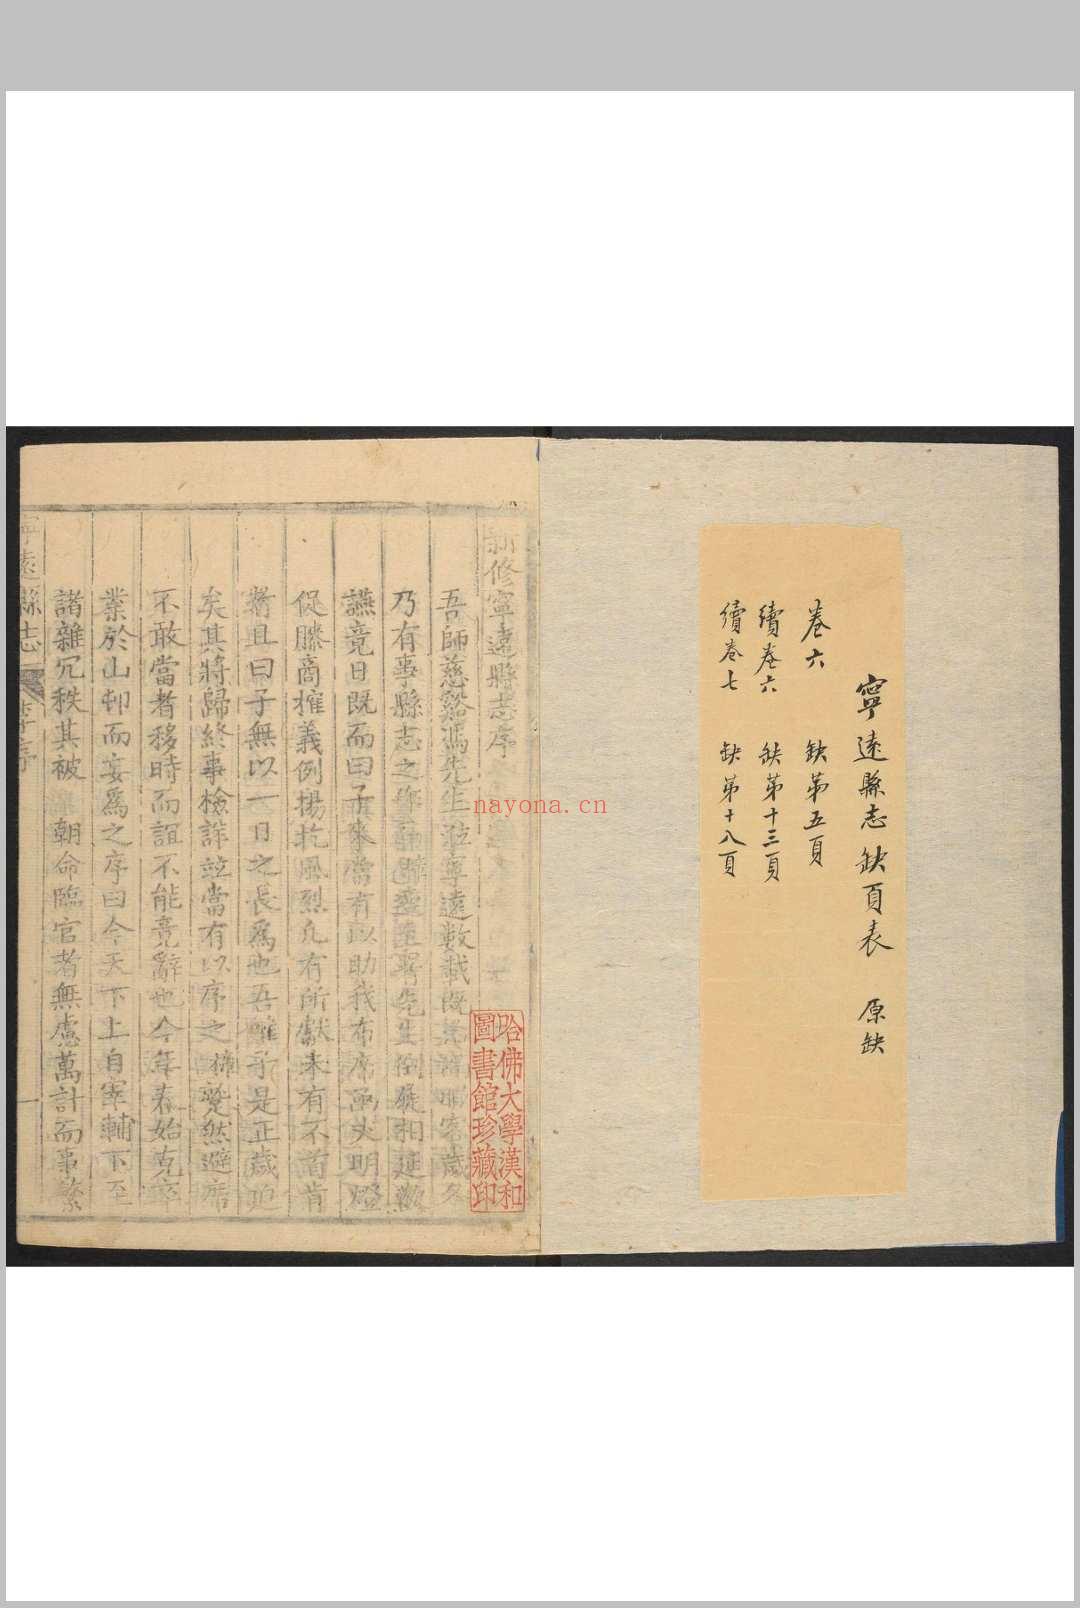 寧遠縣志缺頁表 原缺
卷六 缺第五頁
續卷六 缺第十三頁
續卷七 缺第十八頁
nayona.cn
新修寧遠縣志序
吾師慈谿馮先生蒞寧遠數載既
乃有事縣志之
讌竟日既而曰子來當有以助我布席函丈明燈
促膝商搉義例揚扢風烈凡有所獻未有不首肯
者且曰子無以一日之長為也吾雖
矣其將歸終事檢詳並當有以序之 避席
不敢當者移時而誼不能竟辭也今年春始克卒
業於山邨而妄爲之序曰今天下上自宰輔下至
諸雜冗秩其被 朝命臨官者無慮萬計而事繁
寧遠縣志 序 一
哈佛大學漢和
圖書館珍藏印